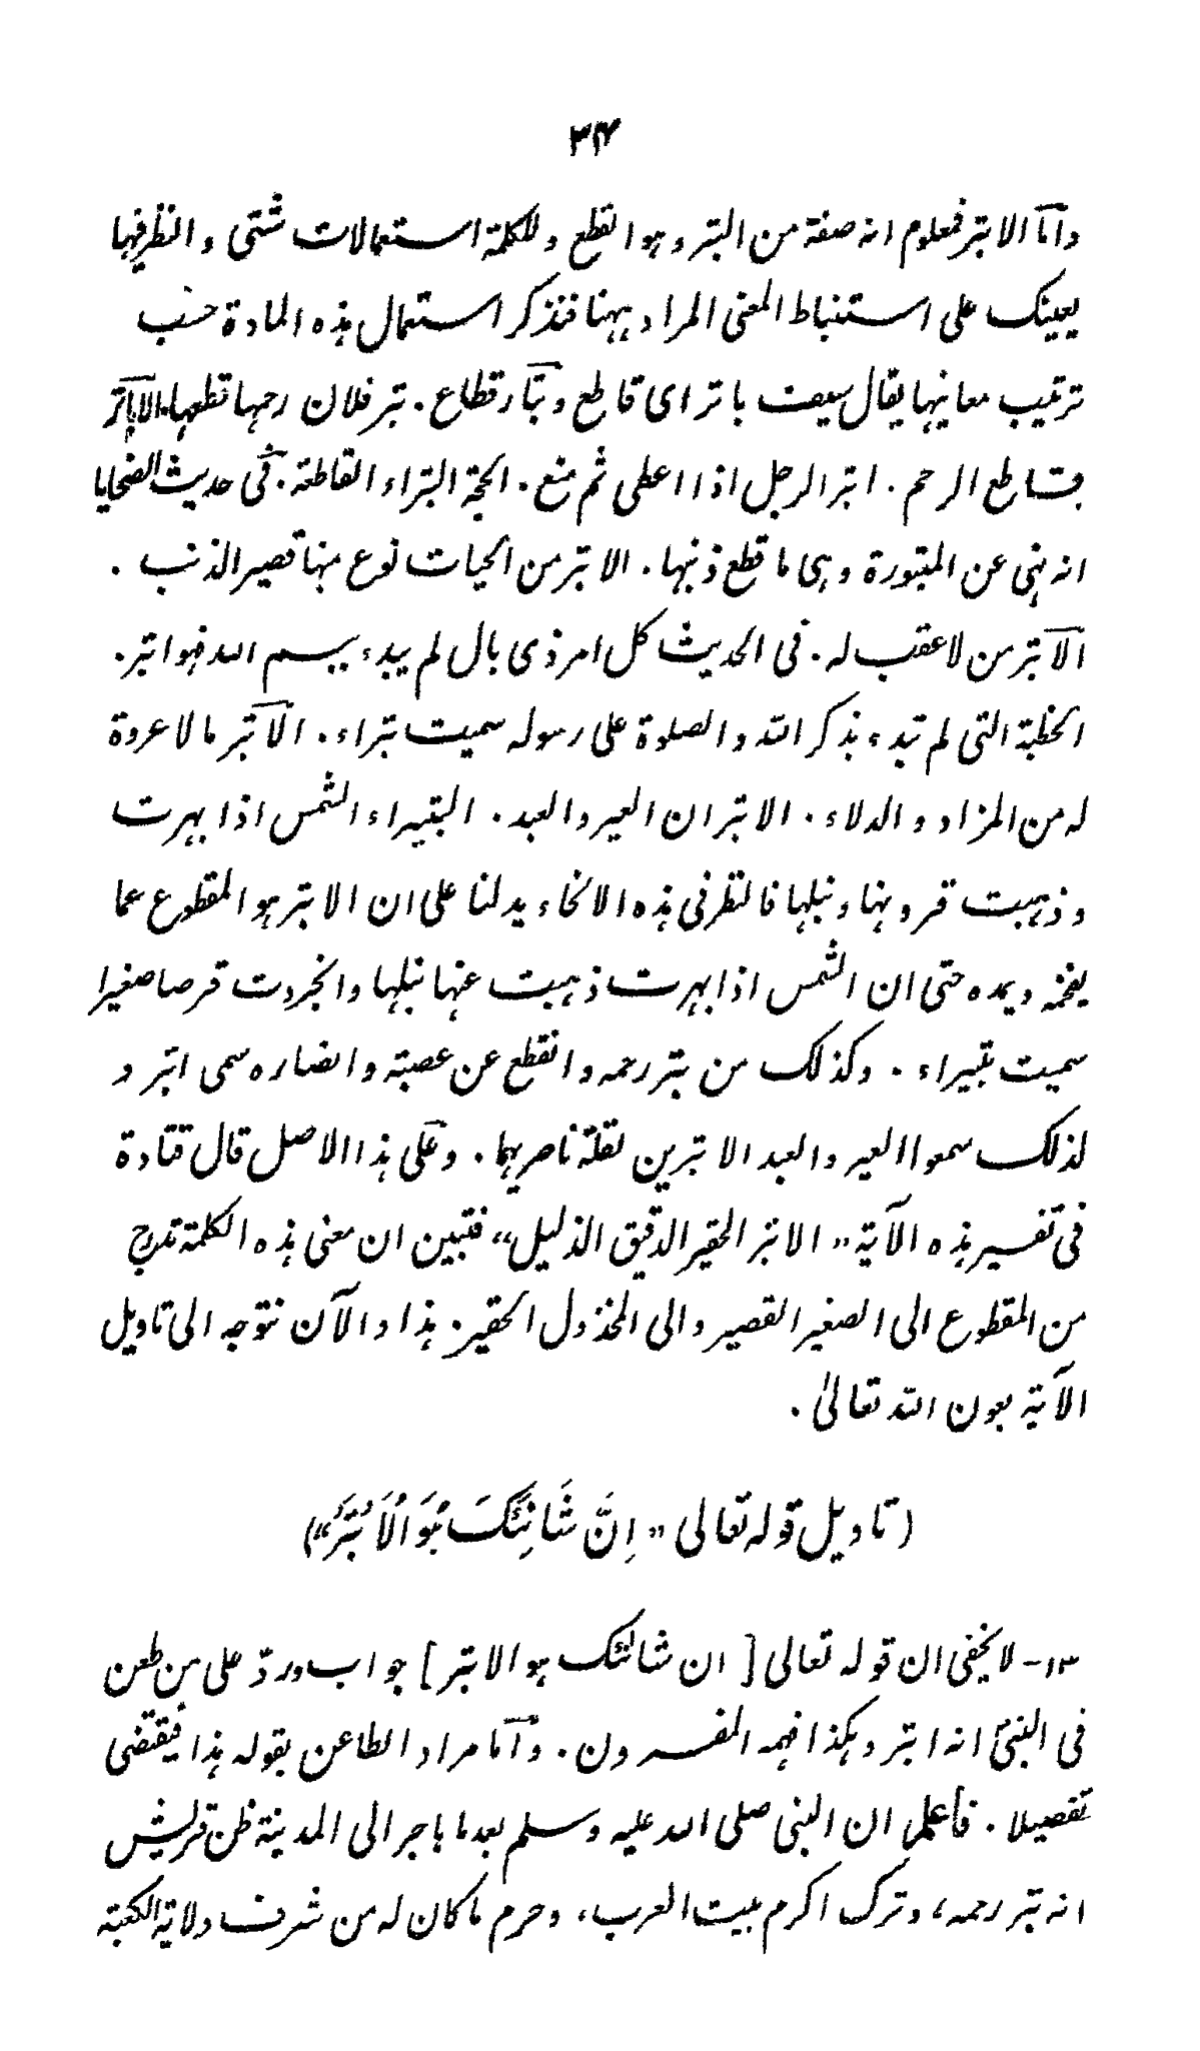 ٣٤
وأمّا الابتر فمعلوم انه صفة من البتر وهو القطع وللكلمة استعمالات شتى والنظر فيها
يعينك على استنباط المعنى المراد ههنا فنذكر استعمال هذه المادة حسب
ترتيب معانيها يقال سيف باتر اى قاطع وبتّار قطاع . بتر فلان رحمها قطعها . الاباتر
قاطع الرحم . ابتر الرجل اذا اعطى ثم منع . الحجة البتراء القاطعة . فى حديث الضحايا
انه نهى عن المبتورة وهى ما قطع ذنبها . الابتر من الحيات نوع منها قصير الذنب .
الابتر من لا عقب له . فى الحديث كل امر ذى بال لم يبدء ببسم الله فهو ابتر .
الخطبة التى لم تبدء بذكر الله والصلوة على رسوله سميت بتراء . الابتر ما لا عروة
له من المزاد والدلاء . الابتران العير والعبد . البتيراء الشمس اذا بهرت
وذهبت قرونها ونبلها فالنظر فى هذه الانحاء يدلنا على ان الابتر هو المقطوع عما
يفخمه ويمده حتى ان الشمس اذا بهرت ذهبت عنها نبلها وانجردت قرصا صغيرا
سميت بتيراء . وكذلك من بتر رحمه وانقطع عن عصبته وانصاره سمى ابتر و
لذلك سموا العير والعبد الابترين لقلة ناصريهما . وعلى هذا الاصل قال قتادة
فى تفسير هذه الآية "الابتر الحقير الدقيق الذليل" فتبين ان معنى هذه الكلمة تدرج
من المقطوع الى الصغير القصير والى المخذول الحقير . هذا والآن نتوجه الى تاويل
الآية بعون الله تعالىٰ .
(تاويل قوله تعالى "اِنَّ شَانِئَكَ هُوَ الْاَبْتَرُ")
١٣- لا يخفى ان قوله تعالى [ان شانئك هو الابتر] جواب وردّ على من طعن
فى النبىؐ انه ابتر وهكذا فهمه المفسرون . وأمّا مراد الطاعن بقوله هذا فيقتضى
تفصيلا . فأعلم ان النبى صلى الله عليه وسلم بعد ما هاجر الى المدينة ظن قريش
انه بتر رحمه، وترك اكرم بيت العرب، وحرم ما كان له من شرف ولاية الكعبة